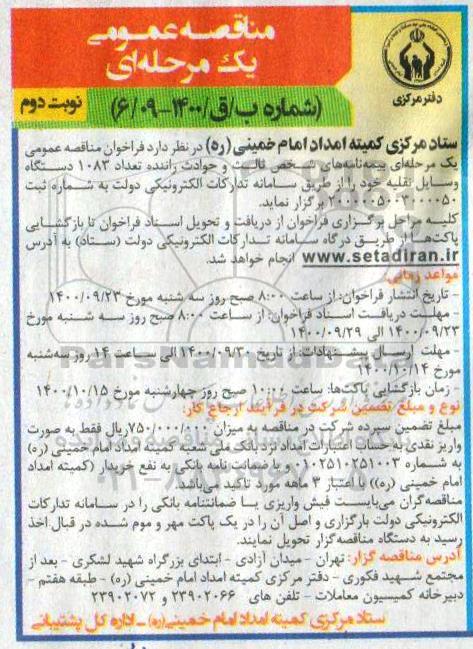 مناقصه عمومی
یک مرحله‌ای
(شماره ب/ق/۱۴۰۰-۶/۰۹)
نوبت دوم
دفتر مرکزی
ستاد مرکزی کمیته امداد امام خمینی (ره) در نظر دارد فراخوان مناقصه عمومی
یک مرحله‌ای بیمه‌نامه‌های شخص ثالث و حوادث راننده تعداد ۱۰۸۳ دستگاه
وسایل نقلیه خود را از طریق سامانه تدارکات الکترونیکی دولت به شماره ثبت
برگزار نماید.
کلیه مراحل برگزاری فراخوان از دریافت و تحویل اسناد فراخوان تا بازگشایی
پاکت‌ها از طریق درگاه سامانه تدارکات الکترونیکی دولت (ستاد) به آدرس
www.setadiran.ir انجام خواهد شد.
مواعد زمانی:
- تاریخ انتشار فراخوان: از ساعت ۸:۰۰ صبح روز سه شنبه مورخ ۱۴۰۰/۰۹/۲۳
- مهلت دریافت اسناد فراخوان: از ساعت ۸:۰۰ صبح روز سه شنبه مورخ
۱۴۰۰/۰۹/۲۳ الی ۱۴۰۰/۰۹/۲۹
- مهلت ارسال پیشنهادات: از تاریخ ۱۴۰۰/۰۹/۳۰ الی ساعت ۱۴ روز سه‌شنبه
مورخ ۱۴۰۰/۱۰/۱۴
- زمان بازگشایی پاکت‌ها: ساعت ۱۰:۰۰ صبح روز چهارشنبه مورخ ۱۴۰۰/۱۰/۱۵
نوع و مبلغ تضمین شرکت در فرآیند ارجاع کار:
مبلغ تضمین سپرده شرکت در مناقصه به میزان ۷۵۰/۰۰۰/۰۰۰ ریال فقط به صورت
واریز نقدی به حساب اعتبارات امداد نزد بانک ملی شعبه کمیته امداد امام خمینی (ره)
به شماره و یا ضمانت نامه بانکی به نفع خریدار (کمیته امداد
امام خمینی (ره)) با اعتبار ۳ ماهه مورد تأکید می‌باشد.
مناقصه‌گران می‌بایست فیش واریزی یا ضمانتنامه بانکی را در سامانه تدارکات
الکترونیکی دولت بارگزاری و اصل آن را در یک پاکت مهر و موم شده در قبال اخذ
رسید به دستگاه مناقصه‌گزار تحویل نمایند.
آدرس مناقصه گزار: تهران - میدان آزادی - ابتدای بزرگراه شهید لشگری - بعد از
مجتمع شهید فکوری - دفتر مرکزی کمیته امداد امام خمینی (ره) - طبقه هفتم -
دبیرخانه کمیسیون معاملات - تلفن های ۲۳۹۰۲۰۶۶ و ۲۳۹۰۲۰۷۲
ستاد مرکزی کمیته امداد امام خمینی(ره) - اداره کل پشتیبانی